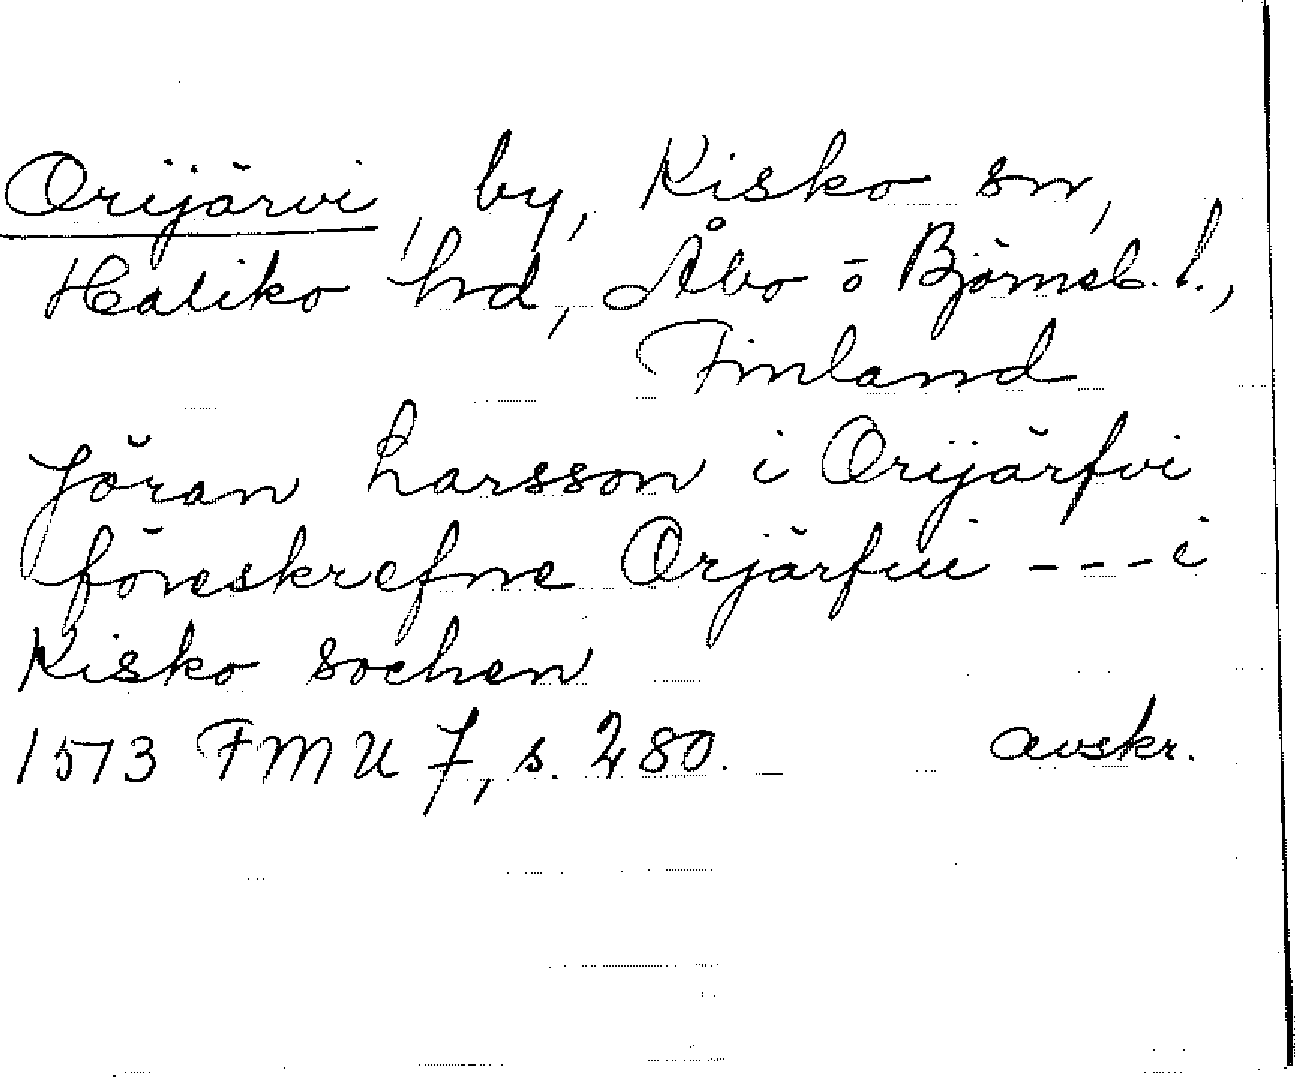 Orijärvi, by, Kisko sn,
Haliko hrd, Åbo o Björneb. l.,
Finland
Jöran Larsson i Orijärfvi
föreskrefne Orjärfui --- i
Kisko sochen
1573 FMU 7, s. 280. avskr.